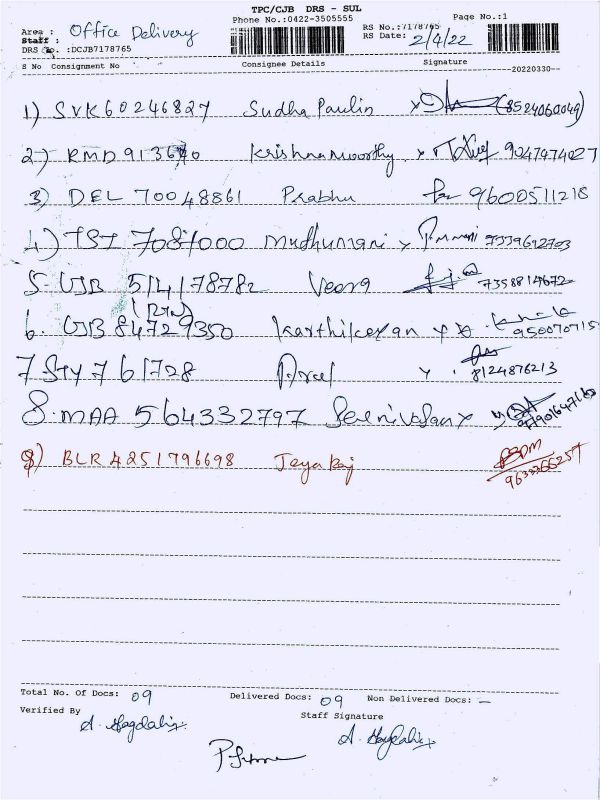 TPC/CJB DRS - SUL
Phone No.:0422-3505555
Page No.:1
Area : Office Delivery
RS No.:7178765
Staff :
RS Date: 2/4/22
DRS No. :DCJB7178765
S No Consignment No Consignee Details Signature
20220330
1) SVK60246827 Sudha Paulin x (8524060049)
2) RMD 913670 Krishnamoorthy x 9047974027
3) DEL 70048861 Prabhu 9600511218
4) TSI 7087000 Mudhumani x P.mmani 7339612703
5. CJB 514178782 Veera 7358814672
(RTN)
6. CJB 84729350 Karthikeyan x 950070715
7 STY 761728 Arul x 8124876213
8. MAA 564332797 Seenivasan x
9) BLR 4251796698 Jeyaraj
Total No. Of Docs: 09 Delivered Docs: 09 Non Delivered Docs: -
Verified By Staff Signature